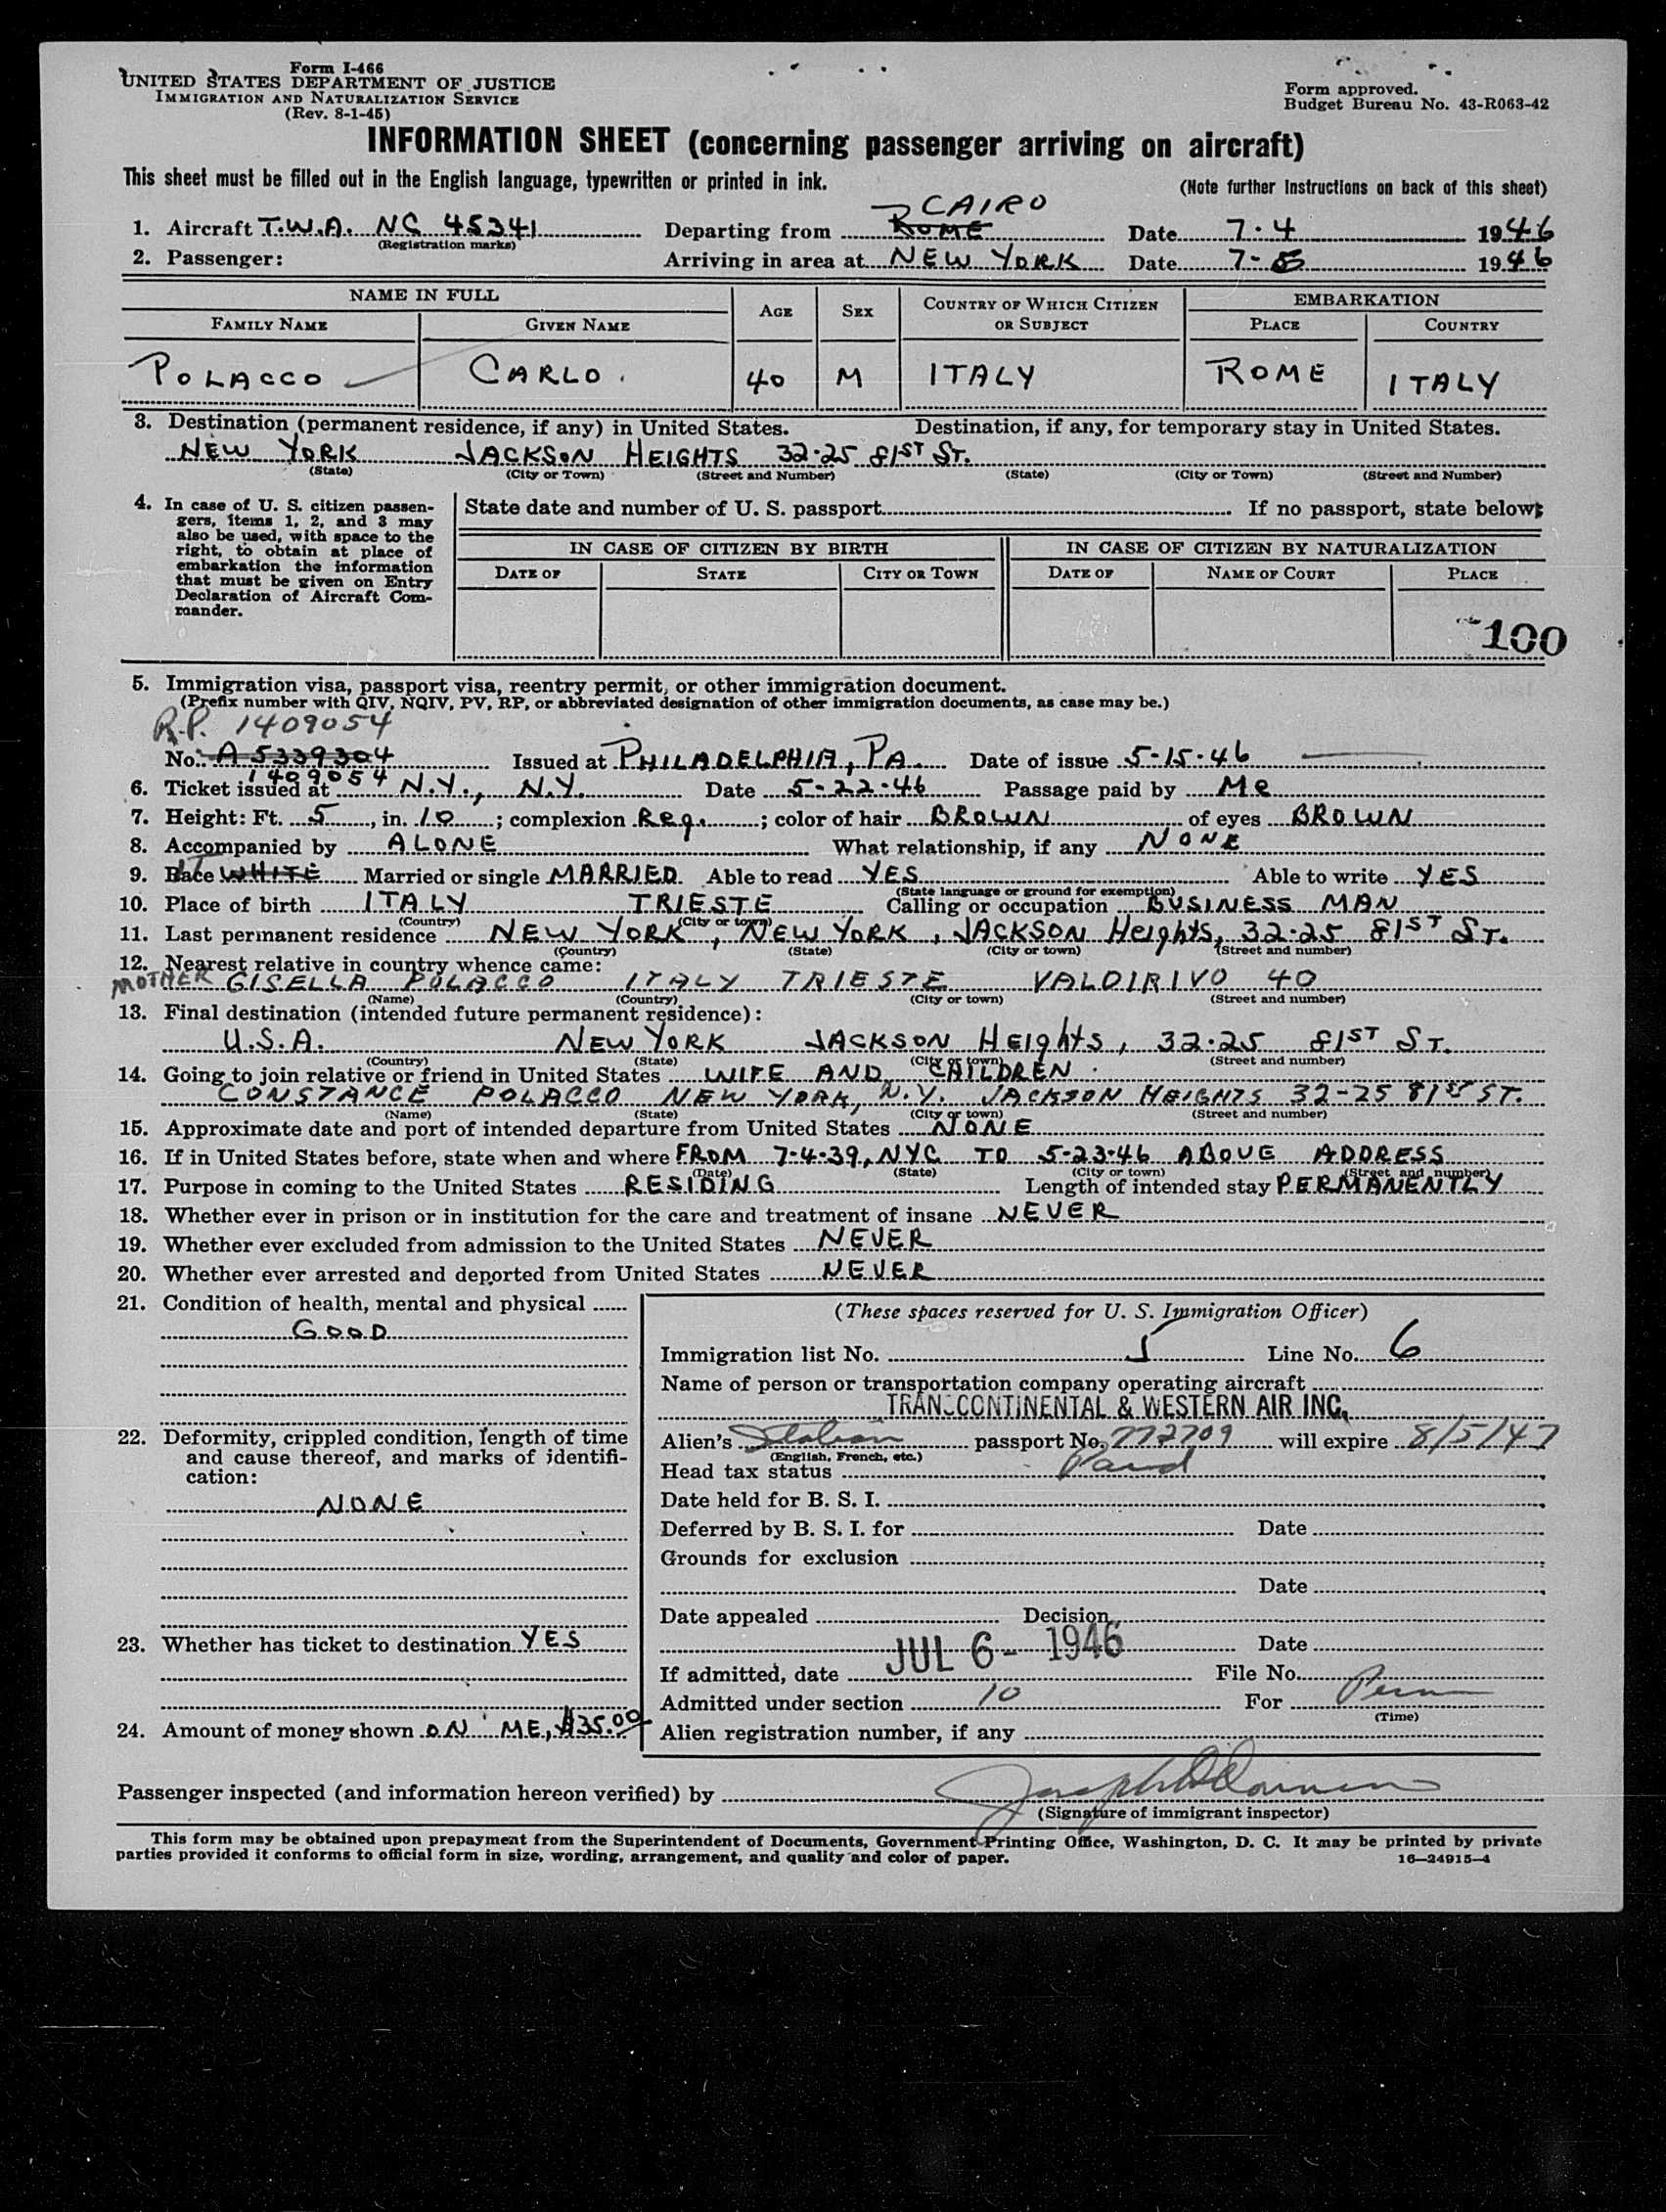 Form I-466
UNITED STATES DEPARTMENT OF JUSTICE
IMMIGRATION AND NATURALIZATION SERVICE
(Rev. 8-1-45)
Form approved.
Budget Bureau No. 43-R063-42
INFORMATION SHEET (concerning passenger arriving on aircraft)
This sheet must be filled out in the English language, typewritten or printed in ink.
(Note further instructions on back of this sheet)
CAIRO
1. Aircraft T.W.A. NC 45341 Departing from ROME Date 7-4 1946
(Registration marks)
2. Passenger: Arriving in area at NEW YORK Date 7-5 1946
NAME IN FULL AGE SEX COUNTRY OF WHICH CITIZEN OR SUBJECT EMBARKATION
FAMILY NAME GIVEN NAME PLACE COUNTRY
POLACCO CARLO. 40 M ITALY ROME ITALY
3. Destination (permanent residence, if any) in United States. Destination, if any, for temporary stay in United States.
NEW YORK JACKSON HEIGHTS 32-25 81ST ST.
(State) (City or Town) (Street and Number) (State) (City or Town) (Street and Number)
4. In case of U. S. citizen passengers, items 1, 2, and 3 may also be used, with space to the right, to obtain at place of embarkation the information that must be given on Entry Declaration of Aircraft Commander.
State date and number of U. S. passport If no passport, state below:
IN CASE OF CITIZEN BY BIRTH IN CASE OF CITIZEN BY NATURALIZATION
DATE OF STATE CITY OR TOWN DATE OF NAME OF COURT PLACE
100
5. Immigration visa, passport visa, reentry permit, or other immigration document.
(Prefix number with QIV, NQIV, PV, RP, or abbreviated designation of other immigration documents, as case may be.)
R.P. 1409054
No. A 5339304 Issued at PHILADELPHIA, PA. Date of issue 5-15-46
1409054
6. Ticket issued at N.Y., N.Y. Date 5-22-46 Passage paid by Me
7. Height: Ft. 5, in. 10; complexion Reg.; color of hair BROWN of eyes BROWN
8. Accompanied by ALONE What relationship, if any NONE
9. Race WHITE IT Married or single MARRIED Able to read YES Able to write YES
(State language or ground for exemption)
10. Place of birth ITALY TRIESTE Calling or occupation BUSINESS MAN
(Country) (City or town)
11. Last permanent residence NEW YORK, NEW YORK, JACKSON Heights, 32-25 81ST ST.
(Country) (State) (City or town) (Street and number)
12. Nearest relative in country whence came:
MOTHER GISELLA POLACCO ITALY TRIESTE VALDIRIVO 40
(Name) (Country) (City or town) (Street and number)
13. Final destination (intended future permanent residence):
U.S.A. NEW YORK JACKSON Heights, 32-25 81ST ST.
(Country) (State) (City or town) (Street and number)
14. Going to join relative or friend in United States WIFE AND CHILDREN.
CONSTANCE POLACCO NEW YORK, N.Y. JACKSON HEIGHTS 32-25 81ST ST.
(Name) (State) (City or town) (Street and number)
15. Approximate date and port of intended departure from United States NONE
16. If in United States before, state when and where FROM 7-4-39, NYC TO 5-23-46 ABOVE ADDRESS
(Date) (State) (City or town) (Street and number)
17. Purpose in coming to the United States RESIDING Length of intended stay PERMANENTLY
18. Whether ever in prison or in institution for the care and treatment of insane NEVER
19. Whether ever excluded from admission to the United States NEVER
20. Whether ever arrested and deported from United States NEVER
21. Condition of health, mental and physical
GOOD
22. Deformity, crippled condition, length of time and cause thereof, and marks of identification:
NONE
23. Whether has ticket to destination YES
24. Amount of money shown ON ME, $35.00
(These spaces reserved for U. S. Immigration Officer)
Immigration list No. 5 Line No. 6
Name of person or transportation company operating aircraft
TRANSCONTINENTAL & WESTERN AIR INC.
Alien's Italian passport No. 772709 will expire 8/5/47
(English, French, etc.)
Head tax status Paid
Date held for B. S. I.
Deferred by B. S. I. for Date
Grounds for exclusion
Date
Date appealed Decision
Date
If admitted, date JUL 6 - 1946 File No.
Admitted under section 10 For Perm
(Time)
Alien registration number, if any
Passenger inspected (and information hereon verified) by
(Signature of immigrant inspector)
This form may be obtained upon prepayment from the Superintendent of Documents, Government Printing Office, Washington, D. C. It may be printed by private
parties provided it conforms to official form in size, wording, arrangement, and quality and color of paper. 16—24915-4